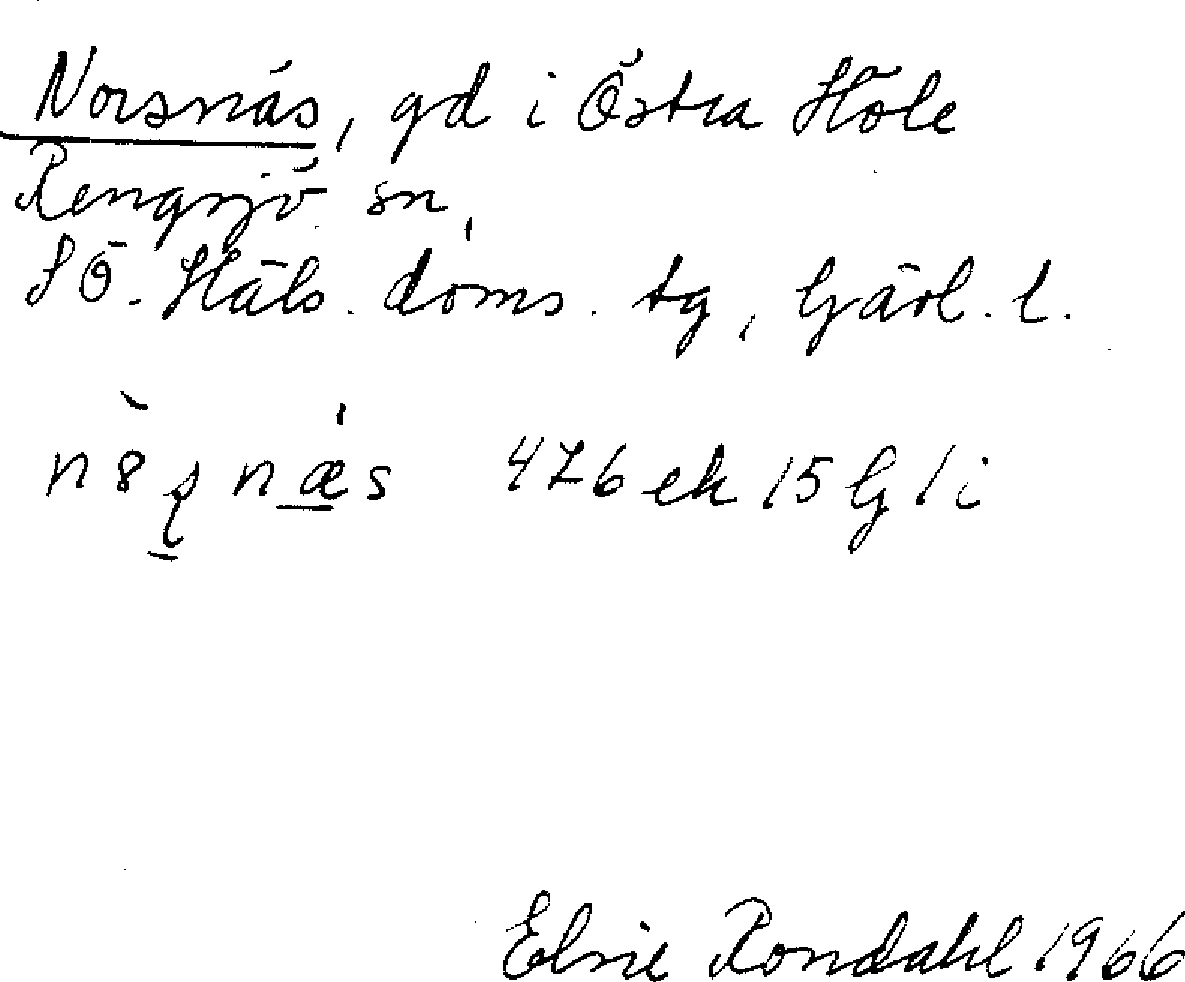 Norsnäs, gd i Östra Höle
Rengsjö sn,
SÖ. Häls. doms. tg, Gävl. l.
476 ek 15 G 1 i
Elsie Rondahl 1966